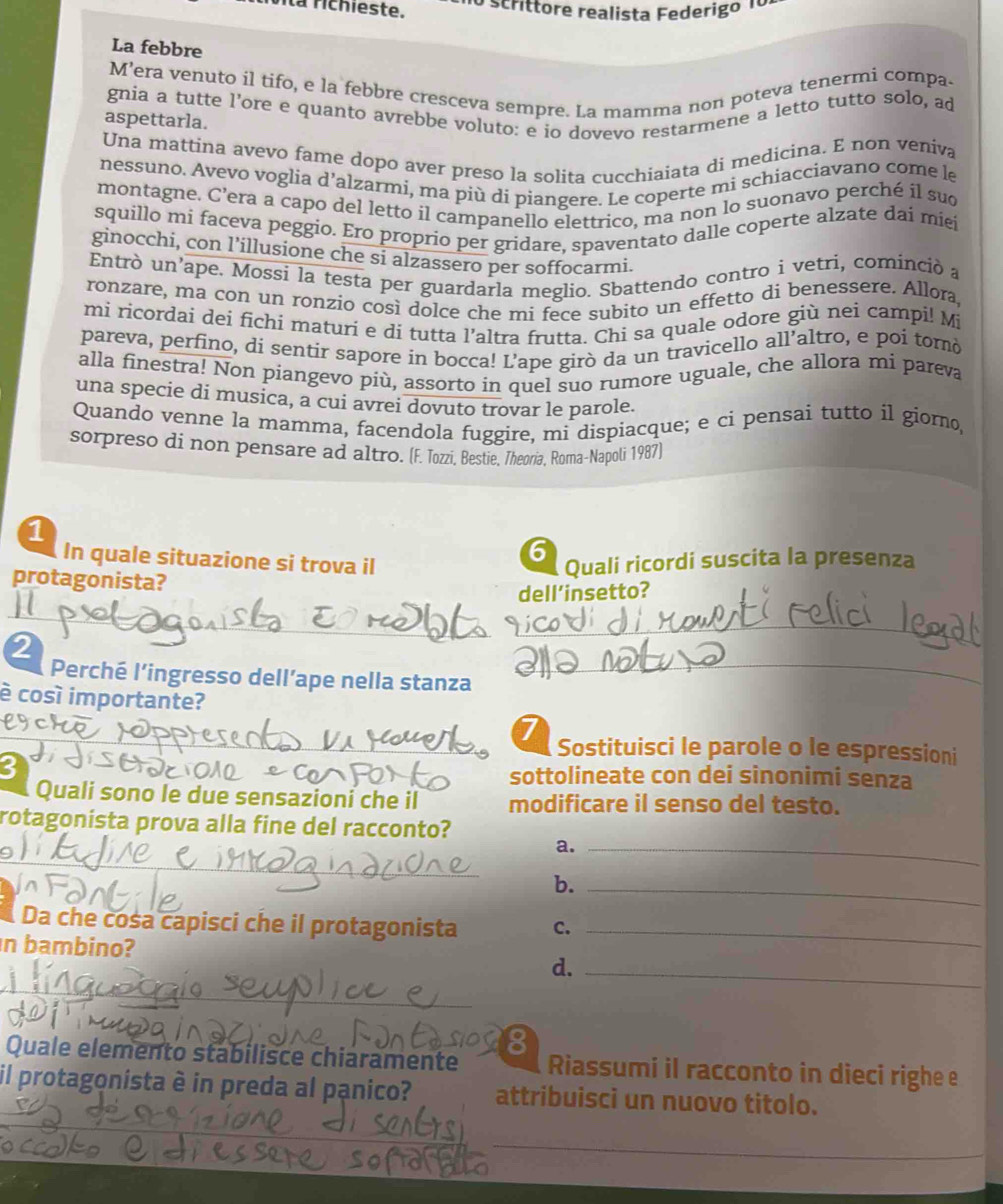 richieste.
scrittore realista Federigo
La febbre
M'era venuto il tifo, e la febbre cresceva sempre. La mamma non poteva tenermi compa-
gnia a tutte l'ore e quanto avrebbe voluto: e io dovevo restarmene a letto tutto solo, ad
aspettarla.
Una mattina avevo fame dopo aver preso la solita cucchiaiata di medicina. E non veniva
nessuno. Avevo voglia d'alzarmi, ma più di piangere. Le coperte mi schiacciavano come le
montagne. C'era a capo del letto il campanello elettrico, ma non lo suonavo perché il suo
squillo mi faceva peggio. Ero proprio per gridare, spaventato dalle coperte alzate dai miei
ginocchi, con l'illusione che si alzassero per soffocarmi.
Entrò un'ape. Mossi la testa per guardarla meglio. Sbattendo contro i vetri, cominciò a
ronzare, ma con un ronzio così dolce che mi fece subito un effetto di benessere. Allora,
mi ricordai dei fichi maturi e di tutta l'altra frutta. Chi sa quale odore giù nei campi! Mi
pareva, perfino, di sentir sapore in bocca! L'ape girò da un travicello all'altro, e poi tornò
alla finestra! Non piangevo più, assorto in quel suo rumore uguale, che allora mi pareva
una specie di musica, a cui avrei dovuto trovar le parole.
Quando venne la mamma, facendola fuggire, mi dispiacque; e ci pensai tutto il giorno,
sorpreso di non pensare ad altro. (F. Tozzi, Bestie, Theoria, Roma-Napoli 1987)
1 In quale situazione si trova il
protagonista?
Il protagonista è malato
2 Perché l'ingresso dell'ape nella stanza
è così importante?
rappresenta un momento
di distrazione e conforto
3 Quali sono le due sensazioni che il
rotagonista prova alla fine del racconto?
olitudine e immaginazione
infantile
Da che cosa capisci che il protagonista
un bambino?
linguaggio semplice e
dell'immaginazione fantasiosa
Quale elemento stabilisce chiaramente
il protagonista è in preda al panico?
sua descrizione di sentirsi
e di essere sopraffatto
6 Quali ricordi suscita la presenza
dell'insetto?
ricordi di momenti felici legat
alla natura
7 Sostituisci le parole o le espressioni
sottolineate con dei sinonimi senza
modificare il senso del testo.
a.
b.
c.
d.
8 Riassumi il racconto in dieci righe e
attribuisci un nuovo titolo.